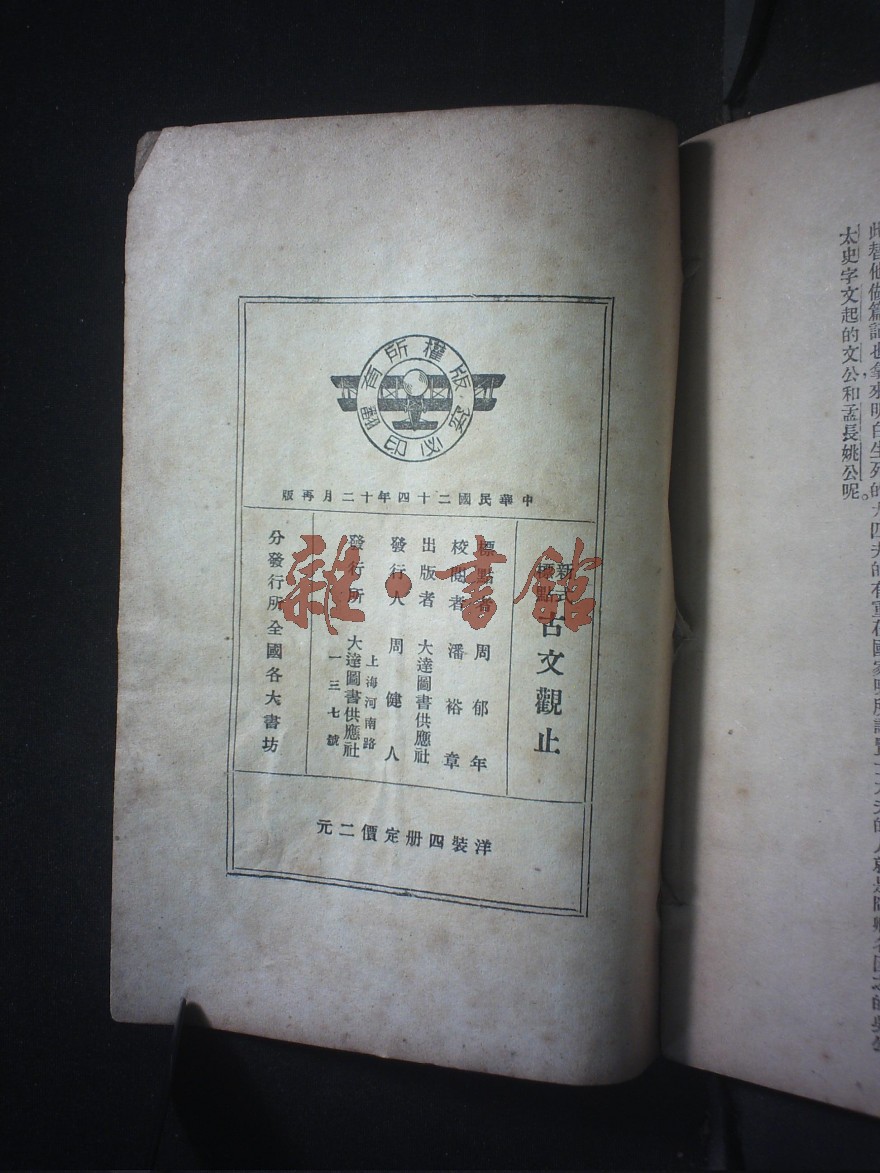 版權所有
翻印必究
中華民國二十四年十二月再版
新式標點 古文觀止
標點者 周郁年
校閱者 潘裕章
出版者 大達圖書供應社
發行人 周健人
發行所 大達圖書供應社
上海河南路
一三七號
分發行所 全國各大書坊
洋裝四册定價二元
雜·書館
太史字文起的文公和孟長姚公呢。